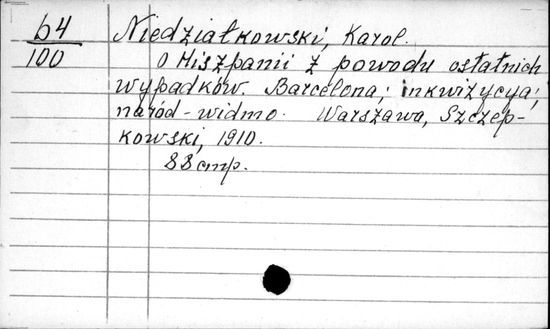 б4
100
Niedziałkowski, Karol.
O Hiszpanii z powodu ostatnich
wypadków. Barcelona; inkwizycya;
naród-widmo. Warszawa, Szczep-
kowski, 1910.
88 стр.